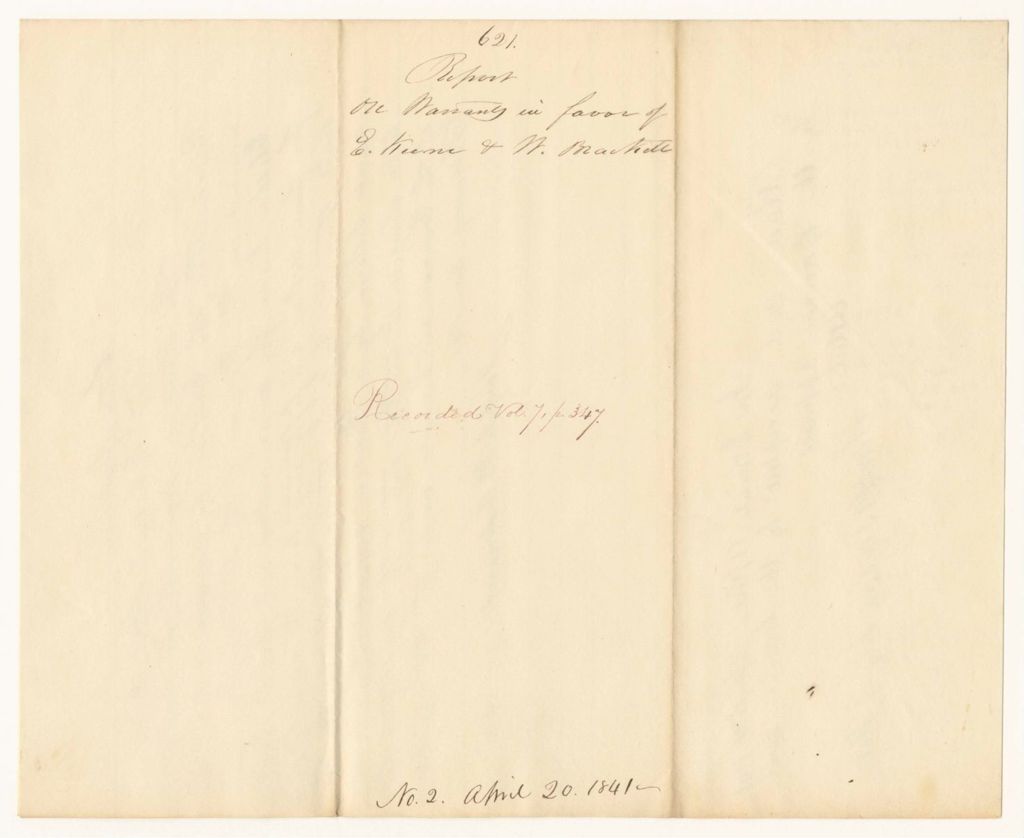 621.
Report
on Warrants in favor of
E. Keene & W. Brackett
Recorded Vol. 7, p. 347.
No. 2. April 20. 1841